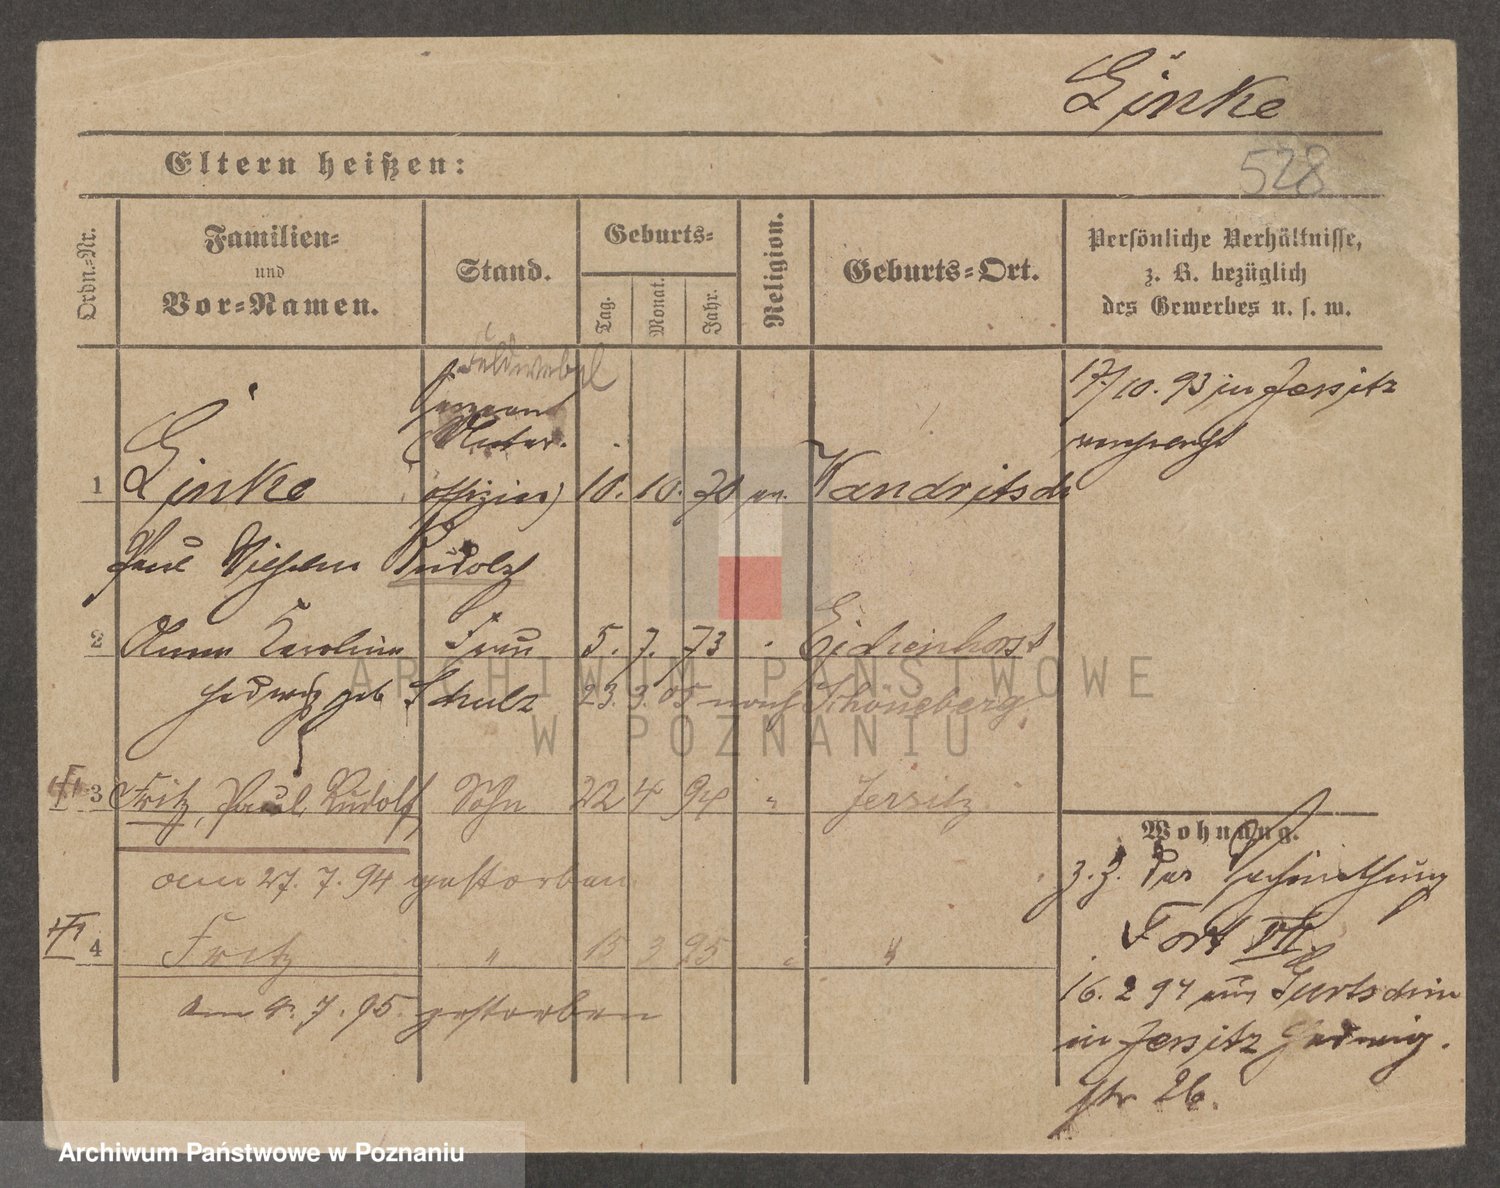 Linke
528
Eltern heißen:
Ordn.-Nr.
Familien-
und
Vor-Namen.
Stand.
Geburts-
Tag.
Monat.
Jahr.
Religion.
Geburts-Ort.
Persönliche Verhältnisse,
z. B. bezüglich
des Gewerbes u. s. w.
Feldwebel
17/10. 93 in Jersitz
Unter-
1 Linke offizier) 10. 10. 70 ev. Kandritsch
Paul Wilhelm Rudolf
2 Anna Karoline Frau 5. 7. 73 Eichenhorst
Hedwig geb Schulz 23. 3. 05 nach Schöneberg
3 Fritz, Paul, Rudolf, Sohn 22 4 94 " Jersitz
am 27. 7. 94 gestorben
4 Fritz " 15 3 95 " "
am 8. 7. 95. gestorben
Wohnung.
z. Z. der
Fort VII
16. 2 94 aus Gurtschin
in Jersitz Hedwig-
str 26.
ARCHIWUM PAŃSTWOWE
W POZNANIU
Archiwum Państwowe w Poznaniu